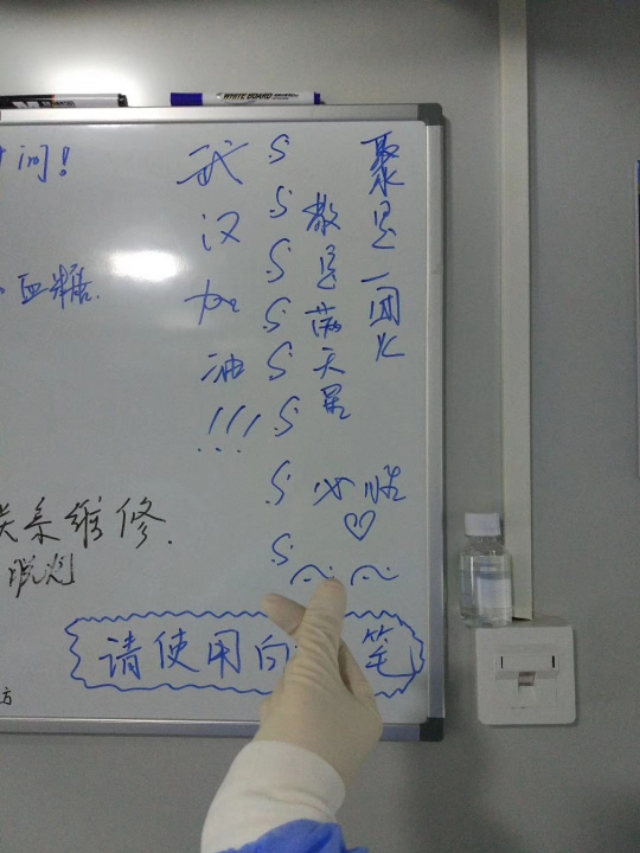 WHITE BOARD
间!
血糖.
系维修.
方
聚是一团火
散是满天星
武汉加油!!!
请使用白 笔